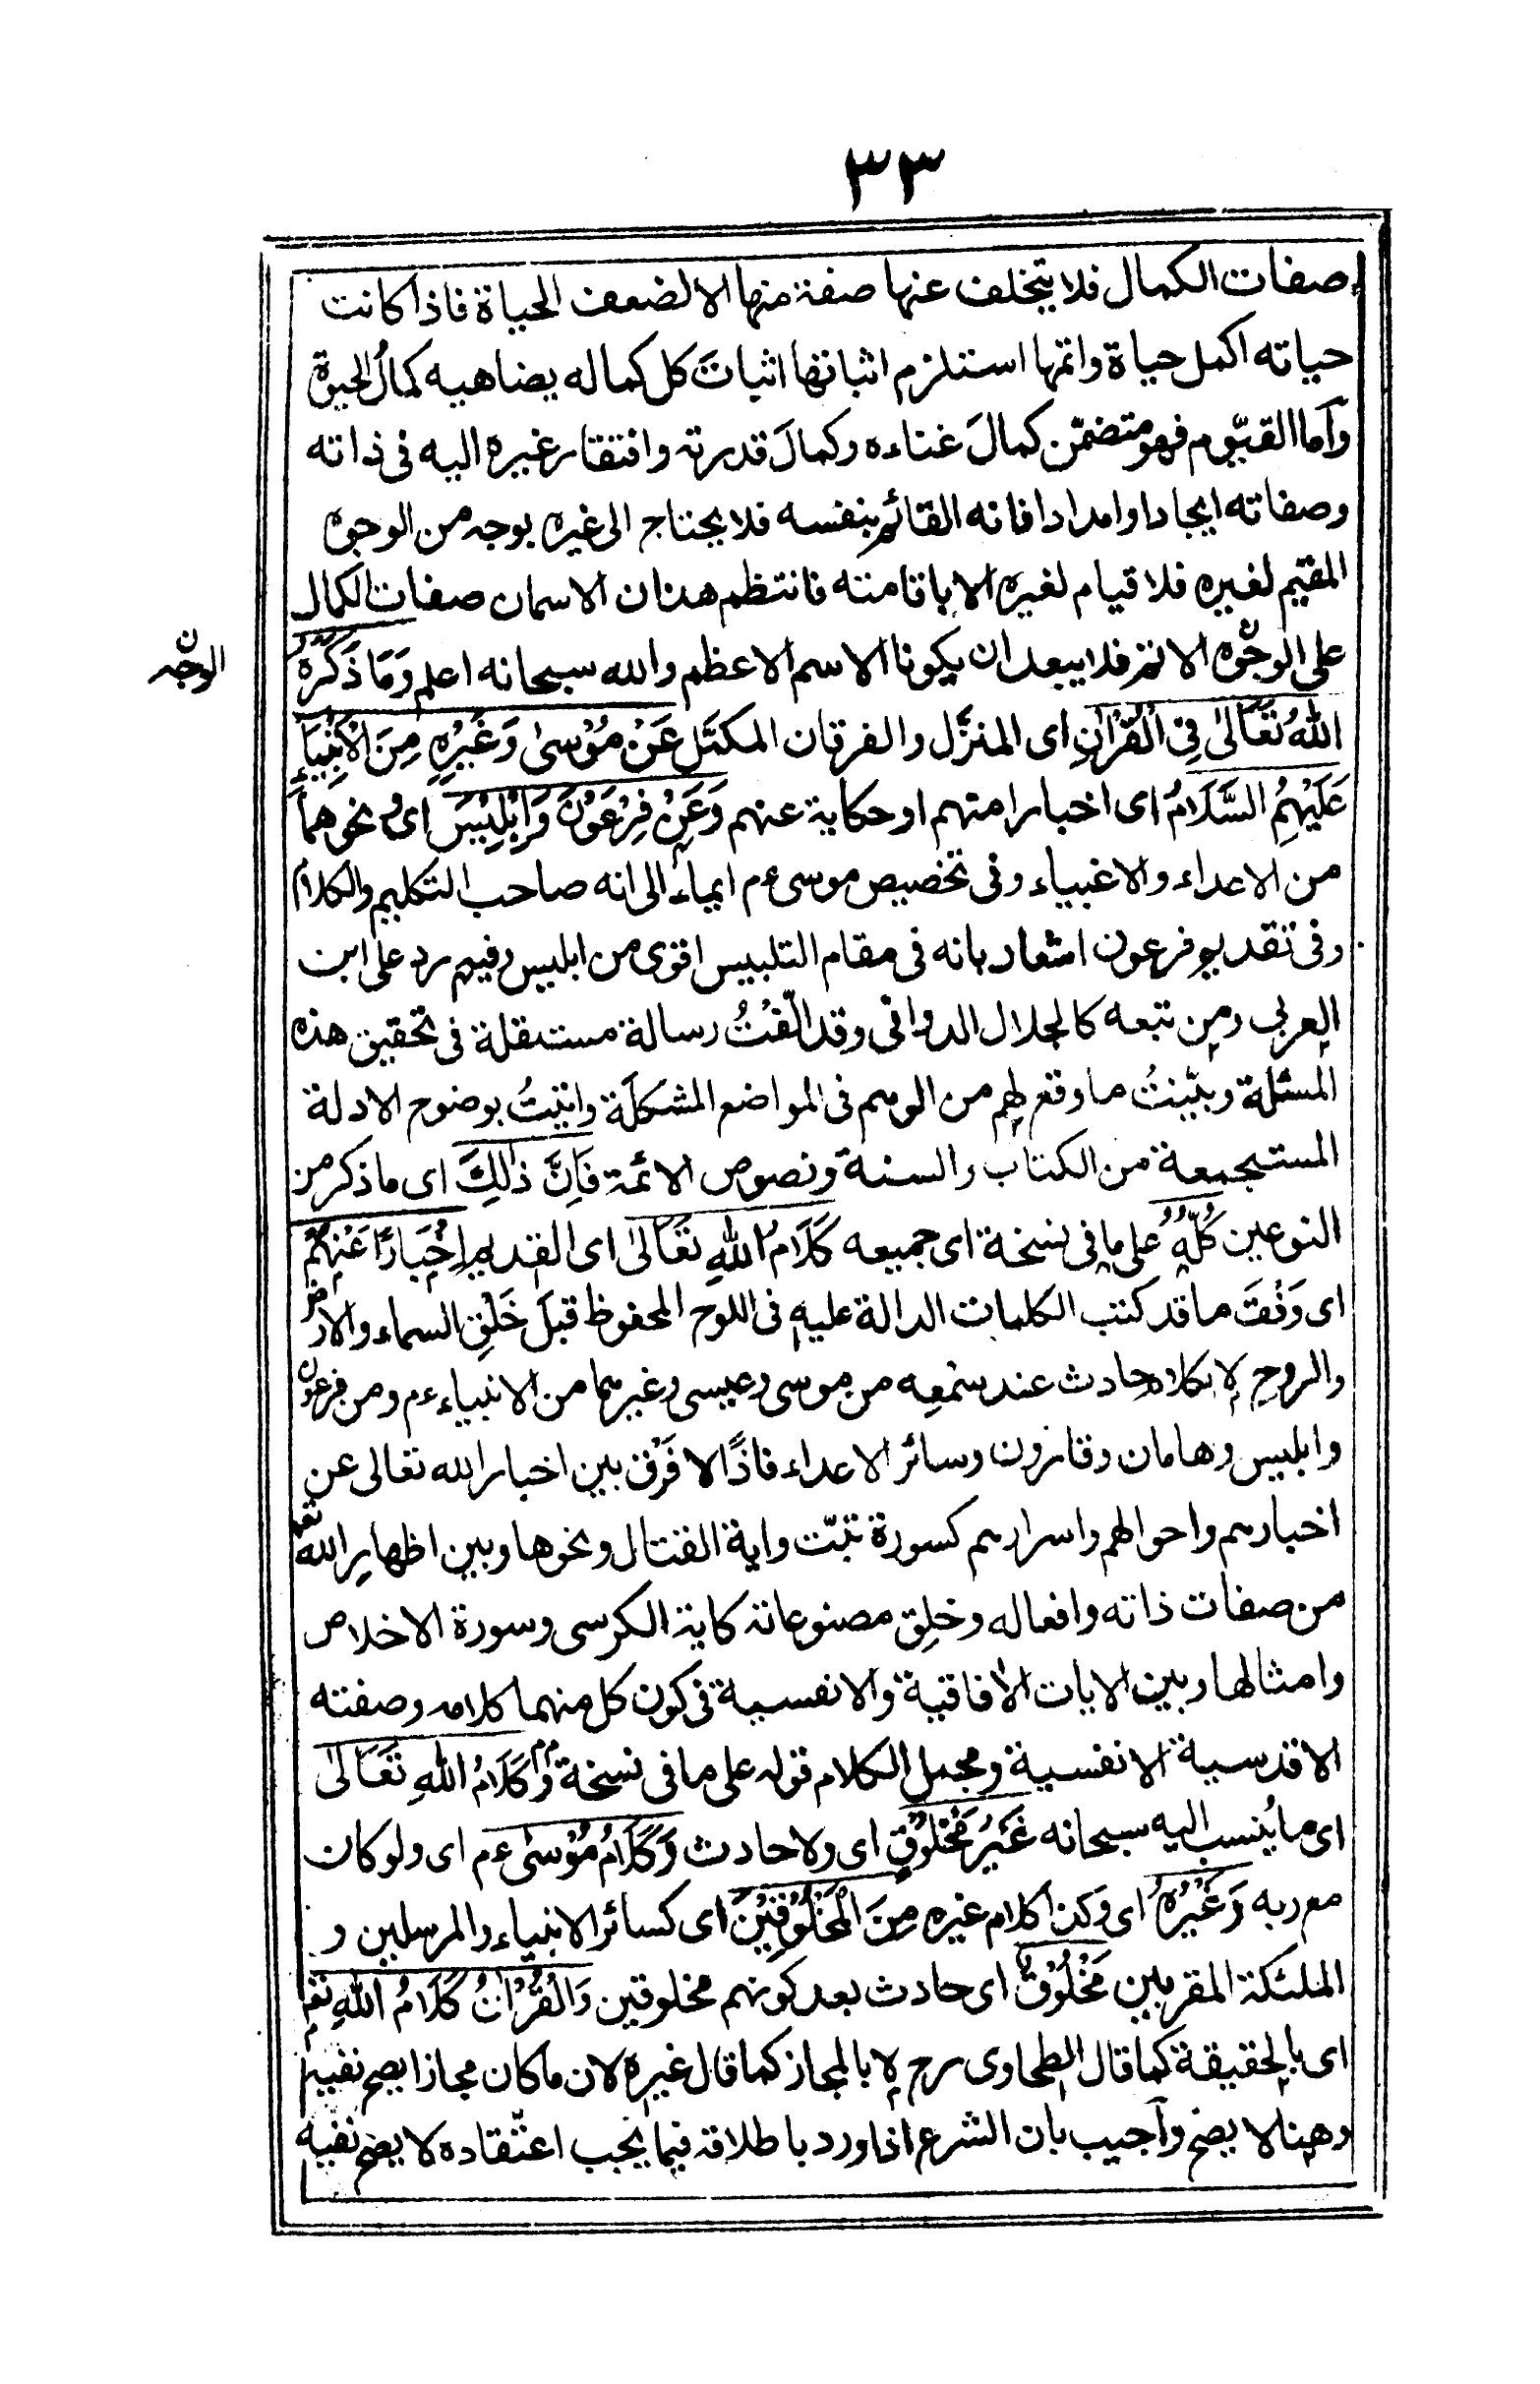 ٣٣
صفات الكمال فلا يتخلف عنها صفة منها الا لضعف الحياة فاذا كانت
حياته اكمل حياة واتمها استلزم اثباتها اثباتَ كل كماله يضاهيه كمالُ الحيوة
وآما القيّوم فهو متضمّن كمالَ غناءه وكمالَ قدرته وافتقار غيره اليه فى ذاته
وصفاته ايجادا وامدادا فانه القائم بنفسه فلا يحتاج الى غيره بوجه من الوجوه
المقيم لغيره فلا قيام لغيره الا باقامته فانتظم هذان الاسمان صفات الكمال
على الوجوه الاتم فلا يبعد ان يكونا الاسم الاعظم والله سبحانه اعلم وَمَا ذَكَرَهُ
الوجه ن
اللهُ تَعَالىٰ فِى الْقُرْاٰنِ اى المنزَّل والفرقان المكمَّل عَنْ مُوْسىٰ وَغَيْرِهٖ مِنَ الْاَنْبِيَاءِ
عَلَيْهِمُ السَّلَامُ اى اخبارا منهم او حكاية عنهم وَعَنْ فِرْعَوْنَ وَاِبْلِيْسَ اى ونحوهما
من الاعداء والاغبياء وفى تخصيص موسى ءم ايماء الى انه صاحب التكليم والكلام
وفى تقديم فرعون اشعار بانه فى مقام التلبيس اقوى من ابليس وفيه رد على ابن
العربى ومن تبعه كالجلال الدوانى وقد الّفْتُ رسالة مستقلة فى تحقيق هذه
المسئلة وبيّنتُ ما وقع لهم من الوهم فى المواضع المشكلة واتيتُ بوضوح الادلة
المستجمعة من الكتاب والسنة ونصوص الائمة فَاِنَّ ذٰلِكَ اى ما ذكر من
النوعين كُلّهٗ على ما فى نسخة اى جميعه كَلَامُ اللهِ تَعَالىٰ اى القديم اِخْبَارًا عَنْهُمْ
اى وَفْقَ ما قد كتب الكلمات الدالة عليه فى اللوح المحفوظ قبلَ خَلْقِ السماء والارض
والروح لا بكلام حادث عند سَمْعِه من موسى وعيسى وغيرهما من الانبياء ءم ومن فرعون
وابليس وهامان وقارون وسائر الاعداء فاذًا لا فَرْق بين اخبار الله تعالى عن
اخبارهم واحوالهم واسرارهم كسورة تبّت واية القتال ونحوها وبين اظهارِ الله تعه
من صفات ذاته وافعاله وخلقِ مصنوعاته كاية الكرسى وسورة الاخلاص
وامثالها وبين الايات الاٰفاقية والانفسية فى كون كل منهما كلامه وصفته
الاقدسية الانفسية ومجمل الكلام قوله على ما فى نسخة وَكَلَامُ اللهِ تَعَالىٰ
اى ما يُنسب اليه سبحانه غَيْرُ مَخْلُوْقٍ اى ولا حادث وَكَلَامُ مُوْسٰى ءم اى ولو كان
مع ربه وَغَيْرِهٖ اى وكذا كلام غيره مِنَ الْمَخْلُوْقِيْنَ اى كسائر الانبياء والمرسلين و
الملئكة المقربين مَخْلُوْقٌ اى حادث بعد كونهم مخلوقين وَالْقُرْاٰنُ كَلَامُ اللهِ تعه
اى بالحقيقة كما قال الطحاوى رح لا بالمجاز كما قال غيره لان ما كان مجازا يصح نفيه
وهنا لا يصح وآجيب بان الشرع اذا ورد باطلاقه فيما يجب اعتقاده لا يصح نفيه